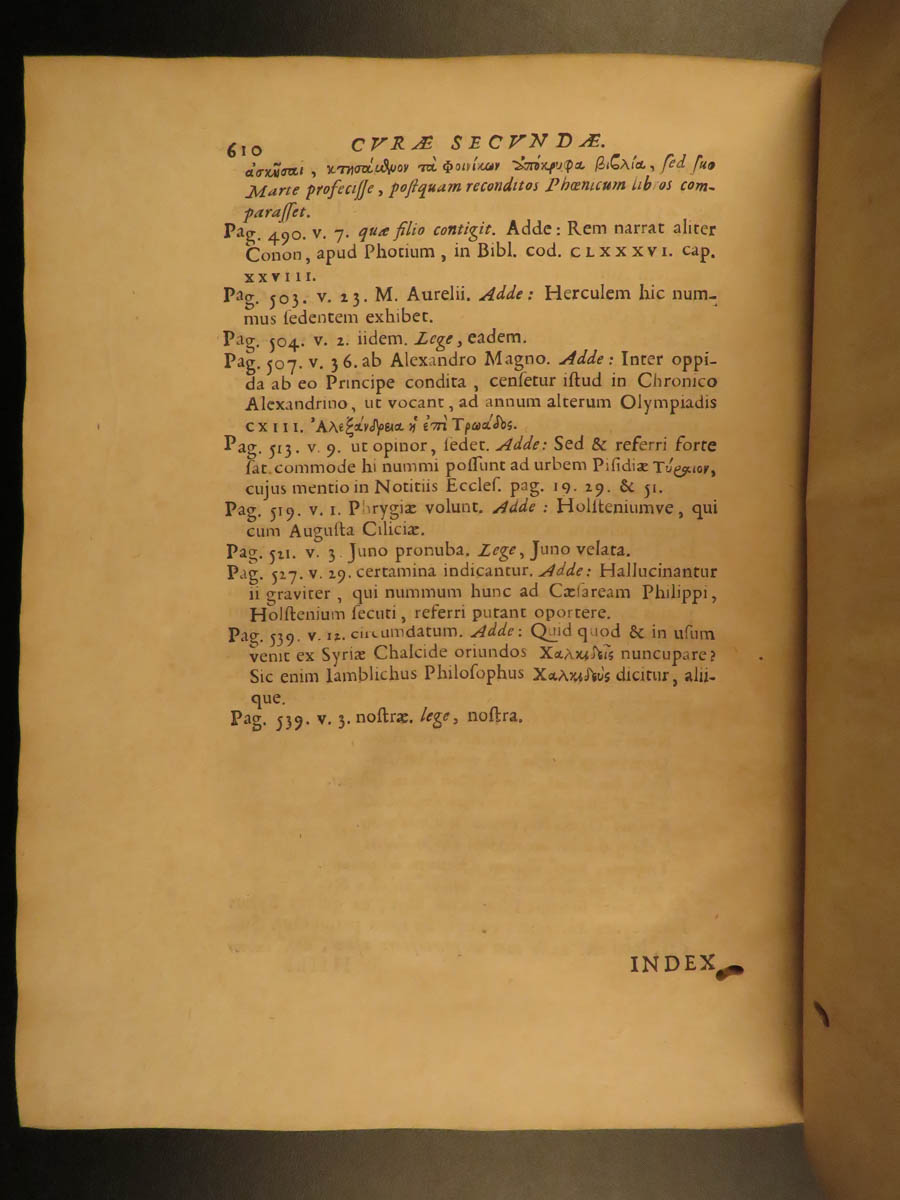 610 CVRÆ SECVNDÆ.
ἀσκῆσαι, κτησάμϑμον τὰ Φοινίκων ἀπόκρυφα βιβλία, ſed ſuo
Marte profeciſſe, poſtquam reconditos Phœnicum libros com-
paraſſet.
Pag. 490. v. 7. quæ filio contigit. Adde: Rem narrat aliter
Conon, apud Photium, in Bibl. cod. CLXXXVI. cap.
XXVIII.
Pag. 503. v. 23. M. Aurelii. Adde: Herculem hic num-
mus ſedentem exhibet.
Pag. 504. v. 2. iidem. Lege, eadem.
Pag. 507. v. 36. ab Alexandro Magno. Adde: Inter oppi-
da ab eo Principe condita, cenſetur iſtud in Chronico
Alexandrino, ut vocant, ad annum alterum Olympiadis
CXIII. Ἀλεξάνδρεια ἡ ἐπὶ Τρωάδος.
Pag. 513. v. 9. ut opinor, ſedet. Adde: Sed & referri forte
ſat commode hi nummi poſſunt ad urbem Piſidiæ Τύραιον,
cujus mentio in Notitiis Eccleſ. pag. 19. 29. & 51.
Pag. 519. v. 1. Phrygiæ volunt. Adde: Holſteniumve, qui
cum Auguſta Ciliciæ.
Pag. 521. v. 3. Juno pronuba. Lege, Juno velata.
Pag. 527. v. 29. certamina indicantur. Adde: Hallucinantur
ii graviter, qui nummum hunc ad Cæſaream Philippi,
Holſtenium ſecuti, referri putant oportere.
Pag. 539. v. 12. circumdatum. Adde: Quid quod & in uſum
venit ex Syriæ Chalcide oriundos Χαλκιδεῖς nuncupare?
Sic enim Iamblichus Philoſophus Χαλκιδεὺς dicitur, alii-
que.
Pag. 539. v. 3. noſtræ. lege, noſtra.
INDEX